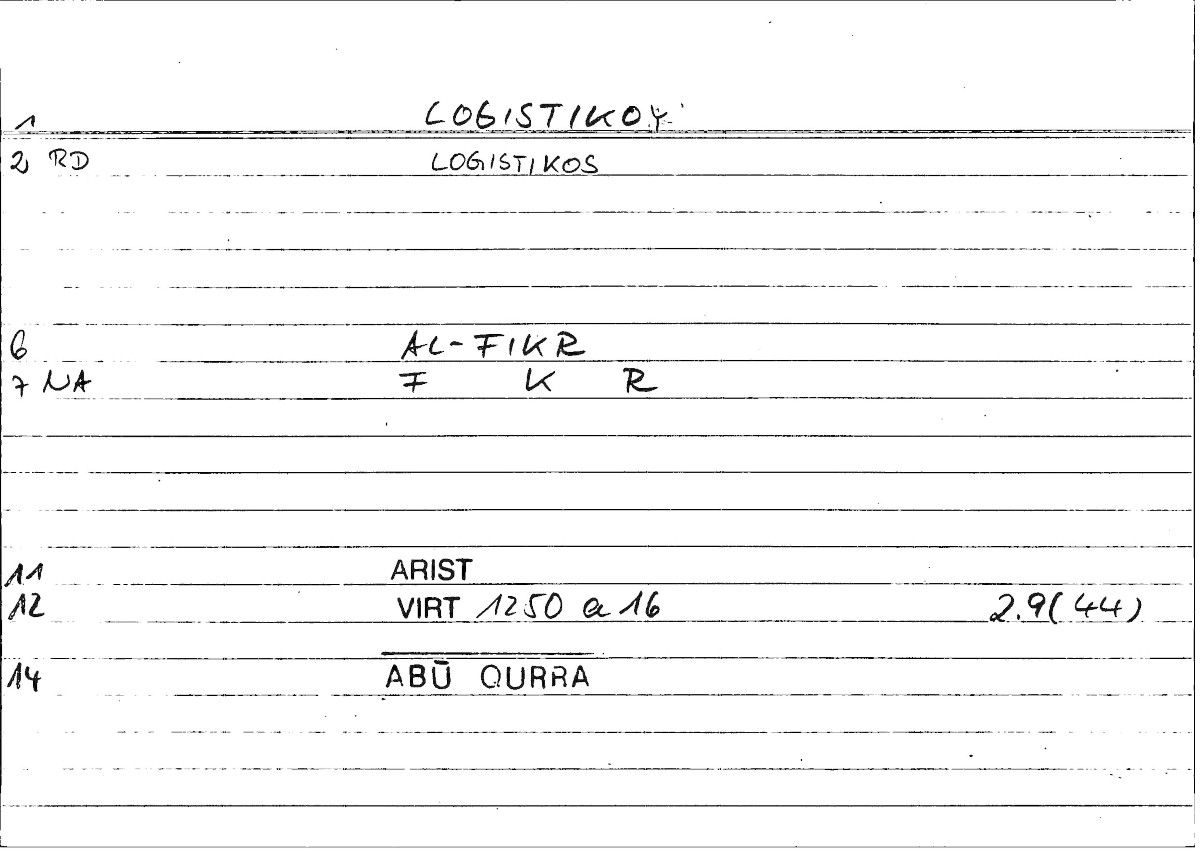 1 LOGISTIKOY
2 RD LOGISTIKOS
6 AL-FIKR
7 NA F K R
11 ARIST
12 VIRT 1250 a 16 2.9(44)
14 ABŪ QURRA